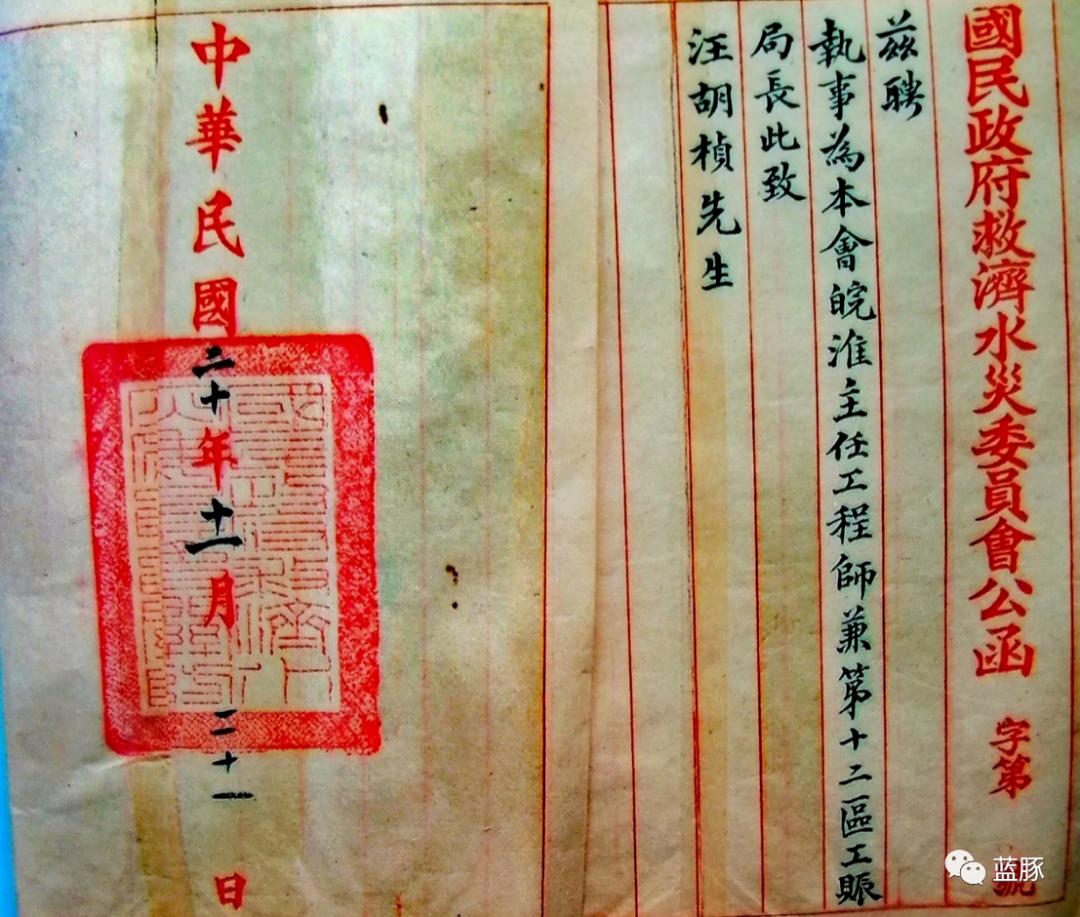 國民政府救濟水災委員會公函 字第 號
茲聘
執事為本會皖淮主任工程師兼第十二區工賑
局長此致
汪胡楨先生
中華民國二十年十一月二十一日
蓝豚